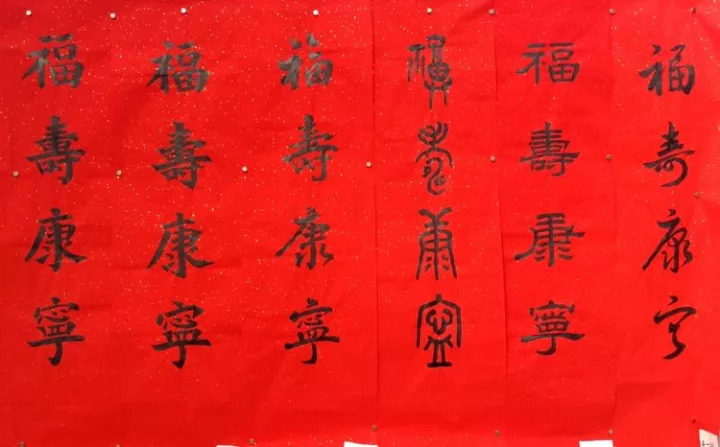 福壽康寧
福壽康寧
福壽康寧
福壽康寧
福壽康寧
福寿康宁